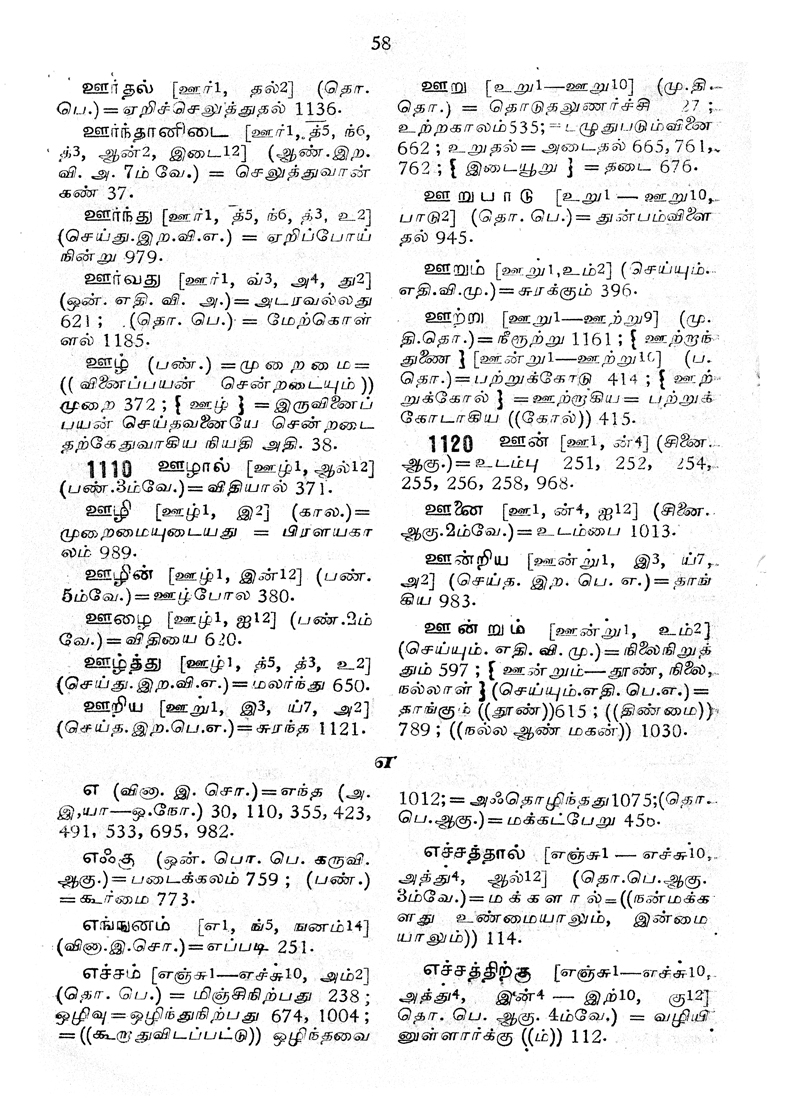 58
ஊர்தல் [ஊர்1, தல்2] (தொ.
பெ.)=ஏறிச்செலுத்துதல் 1136.
ஊர்ந்தானிடை [ஊர்1, த்5, ந்6,
த்3, ஆன்2, இடை12] (ஆண்.இற.
வி. அ. 7ம் வே.) = செலுத்துவான்
கண் 37.
ஊர்ந்து [ஊர்1, த்5, ந்6, த்3, உ2]
(செய்து.இற.வி.எ.) = ஏறிப்போய்
நின்று 979.
ஊர்வது [ஊர்1, வ்3, அ4, து2]
(ஒன். எதி. வி. அ.)=அடரவல்லது
621; (தொ. பெ.) = மேற்கொள்
ளல் 1185.
ஊழ் (பண்.) =முறைமை=
((வினைப்பயன் சென்றடையும்))
முறை 372; { ஊழ் } =இருவினைப்
பயன் செய்தவனையே சென்றடை
தற்கேதுவாகிய நியதி அதி. 38.
1110 ஊழால் [ஊழ்1, ஆல்12]
(பண்.3ம்வே.)=விதியால் 371.
ஊழி [ஊழ்1, இ2] (கால.)=
முறைமையுடையது = பிரளயகா
லம் 989.
ஊழின் [ஊழ்1, இன்12] (பண்.
5ம்வே.)=ஊழ்போல 380.
ஊழை [ஊழ்1, ஐ12] (பண்.2ம்
வே.)=விதியை 620.
ஊழ்த்து [ஊழ்1, த்5, த்3, உ2]
(செய்து.இற.வி.எ.)=மலர்ந்து 650.
ஊறிய [ஊறு1, இ3, ய்7, அ2]
(செய்த.இற.பெ.எ.)=சுரந்த 1121.
ஊறு [உறு1—ஊறு10] (மு.தி.
தொ.) = தொடுதலுணர்ச்சி 27;
உற்றகாலம்535;=பழுதுபடும்வினை
662; உறுதல்=அடைதல் 665,761,
762; { இடையூறு } = தடை 676.
ஊறுபாடு [உறு1—ஊறு10,
பாடு2] (தொ. பெ.)=துன்பம்விளை
தல் 945.
ஊறும் [ஊறு1,உம்2] (செய்யும்.
எதி.வி.மு.)=சுரக்கும் 396.
ஊற்று [ஊறு1—ஊற்று9] (மு.
தி.தொ.)=நீரூற்று 1161; { ஊற்றாந்
துணை } [ஊன்று1—ஊற்று10] (ப.
தொ.)=பற்றுக்கோடு 414; { ஊற்
றுக்கோல் } =ஊற்றாகிய= பற்றுக்
கோடாகிய ((கோல்)) 415.
1120 ஊன் [ஊ1, ன்4] (சினை.
ஆகு.)=உடம்பு 251, 252, 254,
255, 256, 258, 968.
ஊனை [ஊ1, ன்4, ஐ12] (சினை.
ஆகு.2ம்வே.)=உடம்பை 1013.
ஊன்றிய [ஊன்று1, இ3, ய்7,
அ2] (செய்த. இற. பெ. எ.)=தாங்
கிய 983.
ஊன்றும் [ஊன்று1, உம்2]
(செய்யும். எதி. வி. மு.)=நிலைநிறுத்
தும் 597; { ஊன்றும்—தூண், நிலை,
நல்லாள் } (செய்யும்.எதி. பெ.எ.)=
தாங்கும் ((தூண்))615; ((திண்மை))
789; ((நல்ல ஆண் மகன்)) 1030.
எ
எ (வினா. இ. சொ.)=எந்த (அ.
இ,யா—ஒ.நோ.) 30, 110, 355, 423,
491, 533, 695, 982.
எஃகு (ஒன். பொ. பெ. கருவி.
ஆகு.)=படைக்கலம் 759; (பண்.)
=கூர்மை 773.
எங்ஙனம் [எ1, ங்5, ஙனம்14]
(வினா.இ.சொ.)=எப்படி 251.
எச்சம் [எஞ்சு1—எச்சு10, அம்2]
(தொ. பெ.) = மிஞ்சிநிற்பது 238;
ஒழிவு=ஒழிந்துநிற்பது 674, 1004;
=((கூறாதுவிடப்பட்டு)) ஒழிந்தவை
1012;=அஃதொழிந்தது1075;(தொ.
பெ.ஆகு.)=மக்கட்பேறு 456.
எச்சத்தால் [எஞ்சு1—எச்சு10,
அத்து4, ஆல்12] (தொ.பெ.ஆகு.
3ம்வே.)=மக்களால்=((நன்மக்க
ளது உண்மையாலும், இன்மை
யாலும்)) 114.
எச்சத்திற்கு [எஞ்சு1—எச்சு10,
அத்து4, இன்4 — இற்10, கு12]
தொ. பெ. ஆகு. 4ம்வே.) = வழியி
னுள்ளார்க்கு ((ம்)) 112.